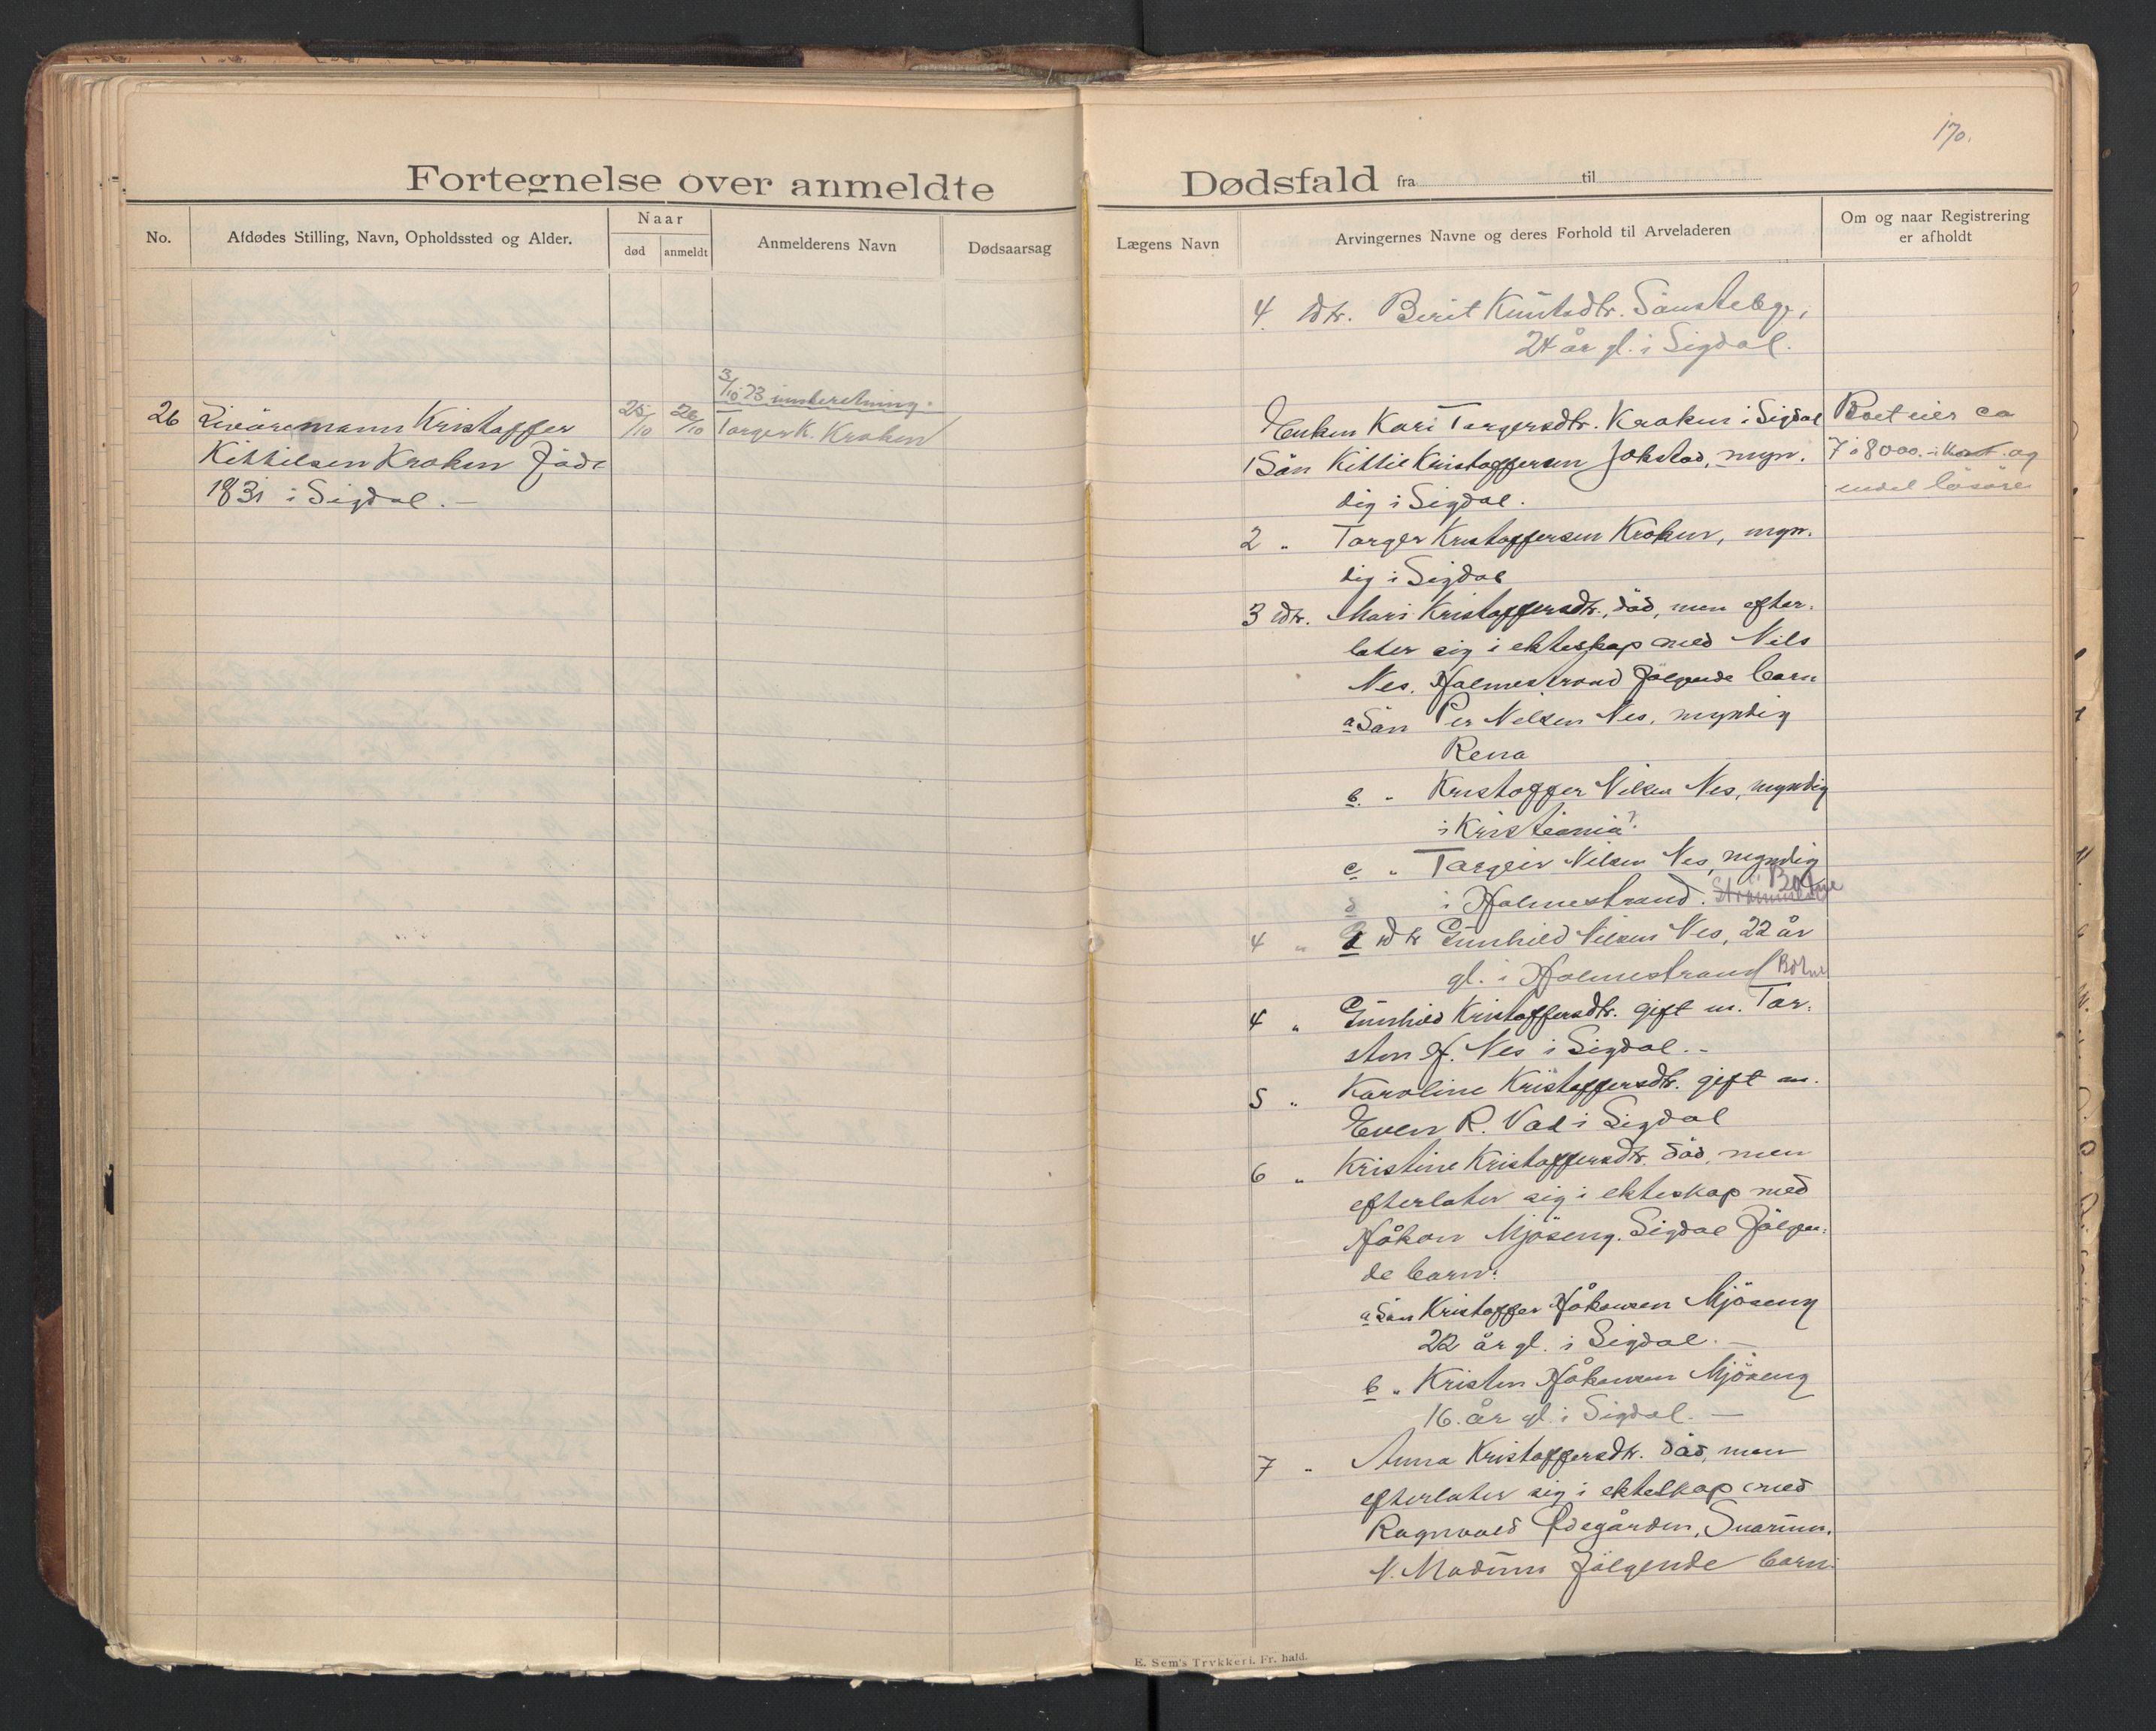 170.
Fortegnelse over anmeldte Dødsfald fra til
No.
Afdødes Stilling, Navn, Opholdssted og Alder.
Naar
død
anmeldt
Anmelderens Navn
Dødsaarsag
Lægens Navn
Arvingernes Navne og deres Forhold til Arveladeren
Om og naar Registrering
er afholdt
4. dtr. Berit Knutsdtr.
24 år gl. i Sigdal.
3/10 23 innberetning.
26 Livöremann Kristoffer 25/10 26/10 Torger K. Kroken
Kittilsen Kroken född
1831 i Sigdal. –
Enken Kari Torgersdtr. Kroken i Sigdal
Boet eier ca
1 Sön Kittil Kristoffersen Jokstad, myn.
7 à 8000.- i kont. og
dig i Sigdal.
endel lösöre
2 " Torger Kristoffersen Kroken, myn.
dig i Sigdal
3 dtr. Mari Kristoffersdtr., död, men efter.
later sig i ekteskap med Nils
Nes. Holmestrand fölgende barn
a Sön Per Nilsen Nes, myndig
Rena
b. " Kristoffer Nilsen Nes, myndig
i Kristiania?
c " Torgeir Nilsen Nes, myndig
d i Holmestrand. Botne
4 " d dtr Gunhild Nilsen Nes, 22 år
gl. i Holmestrand Botne
4 " Gunhild Kristoffersdtr. gift m. Tor.
sten H. Nes i Sigdal. -
5 " Karoline Kristoffersdtr. gift m.
Even R. Vad i Sigdal
6 " Kristine Kristoffersdtr. död, men
efterlater sig i ekteskap med
Håkon Mjöseng. Sigdal fölgen:
de barn:
a Sön Kristoffer Håkonsen Mjöseng
22 år gl. i Sigdal. –
b " Kristen Håkonsen Mjöseng
16 år gl. i Sigdal. –
7 " Anna Kristoffersdtr. död, men
efterlater sig i ekteskap med
Ragnvald Ödegården, Snarum.
N. Modum fölgende barn:
E. Sem's Trykkeri. Fr. hald.